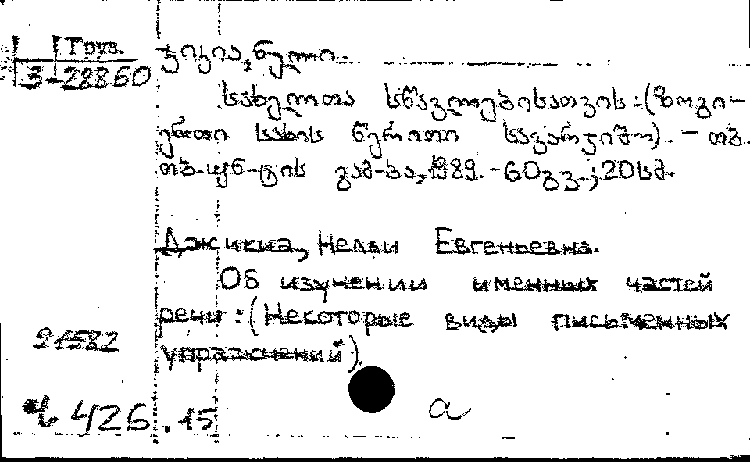 Груз.
3-28860
ჯიქია, ნელი.
სახელთა სწავლებისათვის : (ზოგი-
ერთი სახის წერითი სავარჯიშო). – თბ.
თბ. უნ-ტის გამ-ბა, 1989. – 60 გვ.; 20 სმ.
Джикиа, Нелли Евгеньевна.
Об изучении именных частей
речи : (Некоторые виды письменных
упражнений).
91582
4 426.15 a